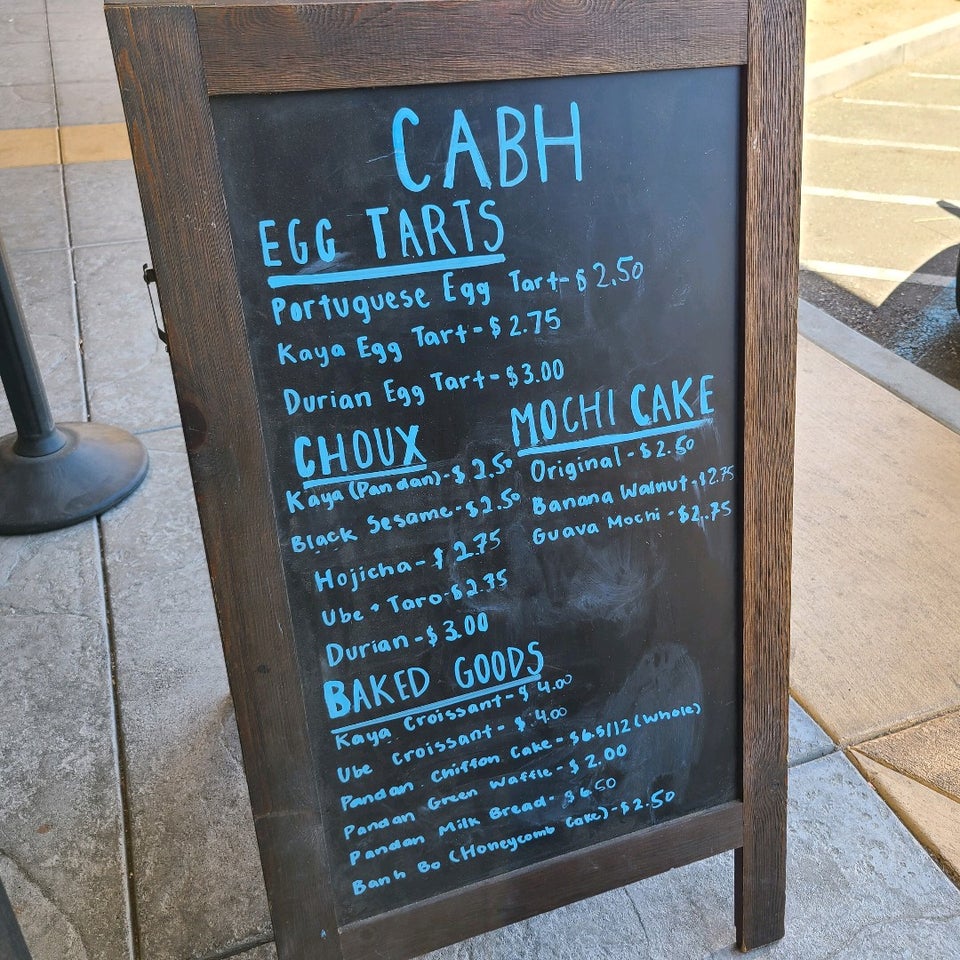 CABH
EGG TARTS
Portuguese Egg Tart - $2.50
Kaya Egg Tart - $2.75
Durian Egg Tart - $3.00
CHOUX
Kaya (Pandan) - $2.50
Black Sesame - $2.50
Hojicha - $2.75
Ube + Taro - $2.75
Durian - $3.00
MOCHI CAKE
Original - $2.50
Banana Walnut - $2.75
Guava Mochi - $2.75
BAKED GOODS
Kaya Croissant - $4.00
Ube Croissant - $4.00
Pandan Chiffon Cake - $6.5/12 (Whole)
Pandan Green Waffle - $2.00
Pandan Milk Bread - $6.50
Banh Bo (Honeycomb Cake) - $2.50